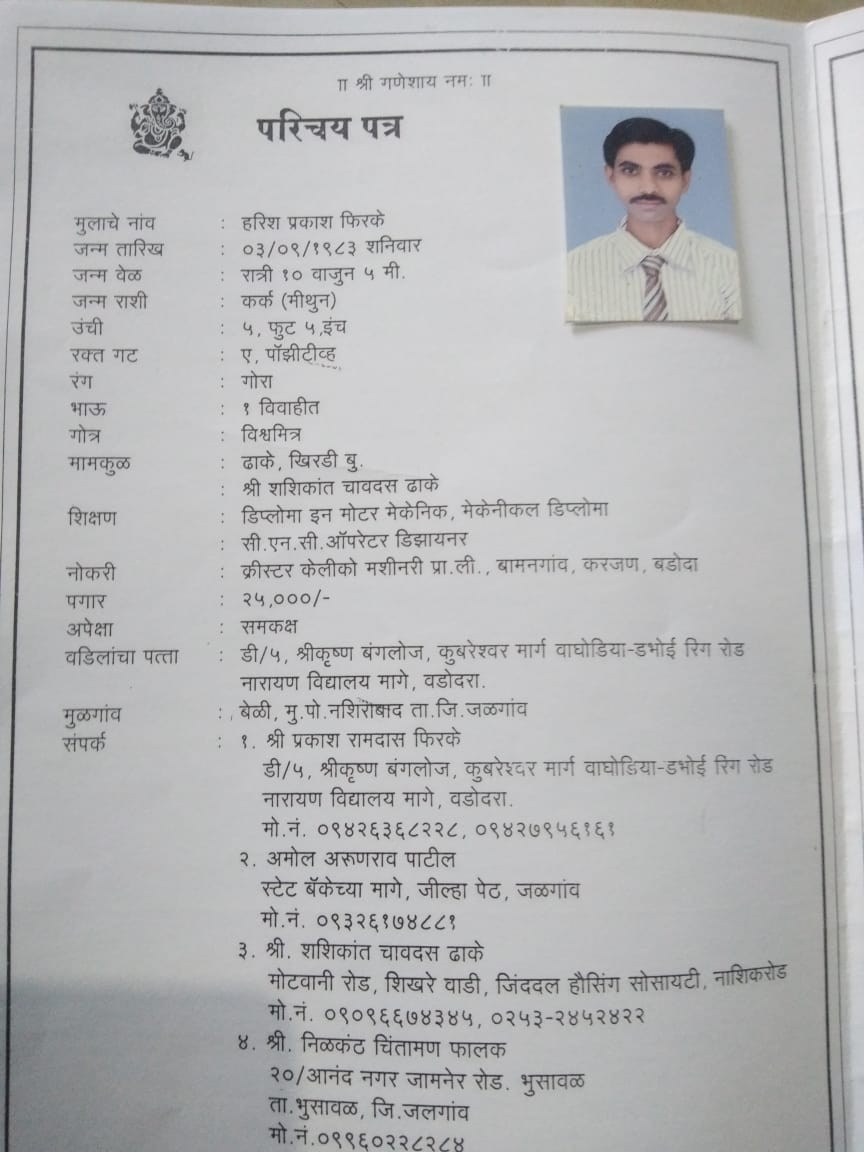 ॥ श्री गणेशाय नमः ॥
परिचय पत्र
मुलाचे नांव : हरिश प्रकाश फिरके
जन्म तारिख : ०३/०९/१९८३ शनिवार
जन्म वेळ : रात्री १० वाजुन ५ मी.
जन्म राशी : कर्क (मीथुन)
उंची : ५, फुट ५,इंच
रक्त गट : ए, पॉझीटीव्ह
रंग : गोरा
भाऊ : १ विवाहीत
गोत्र : विश्वमित्र
मामकुळ : ढाके, खिरडी बु.
: श्री शशिकांत चावदस ढाके
शिक्षण : डिप्लोमा इन मोटर मेकेनिक, मेकेनीकल डिप्लोमा
: सी.एन.सी.ऑपरेटर डिझायनर
नोकरी : क्रीस्टर केलीको मशीनरी प्रा.ली., बामनगांव, करजण, बडोदा
पगार : २५,०००/-
अपेक्षा : समकक्ष
वडिलांचा पत्ता : डी/५, श्रीकृष्ण बंगलोज, कुबरेश्वर मार्ग वाघोडिया-डभोई रिग रोड
नारायण विद्यालय मागे, वडोदरा.
मुळगांव : बेळी, मु.पो.नशिराबाद ता.जि.जळगांव
संपर्क : १. श्री प्रकाश रामदास फिरके
डी/५, श्रीकृष्ण बंगलोज, कुबरेश्वर मार्ग वाघोडिया-डभोई रिग रोड
नारायण विद्यालय मागे, वडोदरा.
मो.नं. ०९४२६३६८२२८, ०९४२७९५६१६१
२. अमोल अरूणराव पाटील
स्टेट बॅकेच्या मागे, जील्हा पेठ, जळगांव
मो.नं. ०९३२६१७४८८१
३. श्री. शशिकांत चावदस ढाके
मोटवानी रोड, शिखरे वाडी, जिंददल हौसिंग सोसायटी, नाशिकरोड
मो.नं. ०९०९६६७४३४५, ०२५३-२४५२४२२
४. श्री. निळकंठ चिंतामण फालक
२०/आनंद नगर जामनेर रोड. भुसावळ
ता.भुसावळ, जि.जलगांव
मो.नं.०९९६०२२८२८४